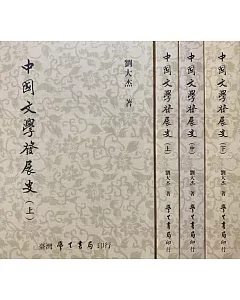 中国文學發展史(上)
劉大杰 著
臺灣 學生書局 印行
中国文學發展史(上)
劉大杰 著
學生書局 印行
中国文學發展史(中)
劉大杰 著
學生書局 印行
中国文學發展史(下)
劉大杰 著
學生書局 印行